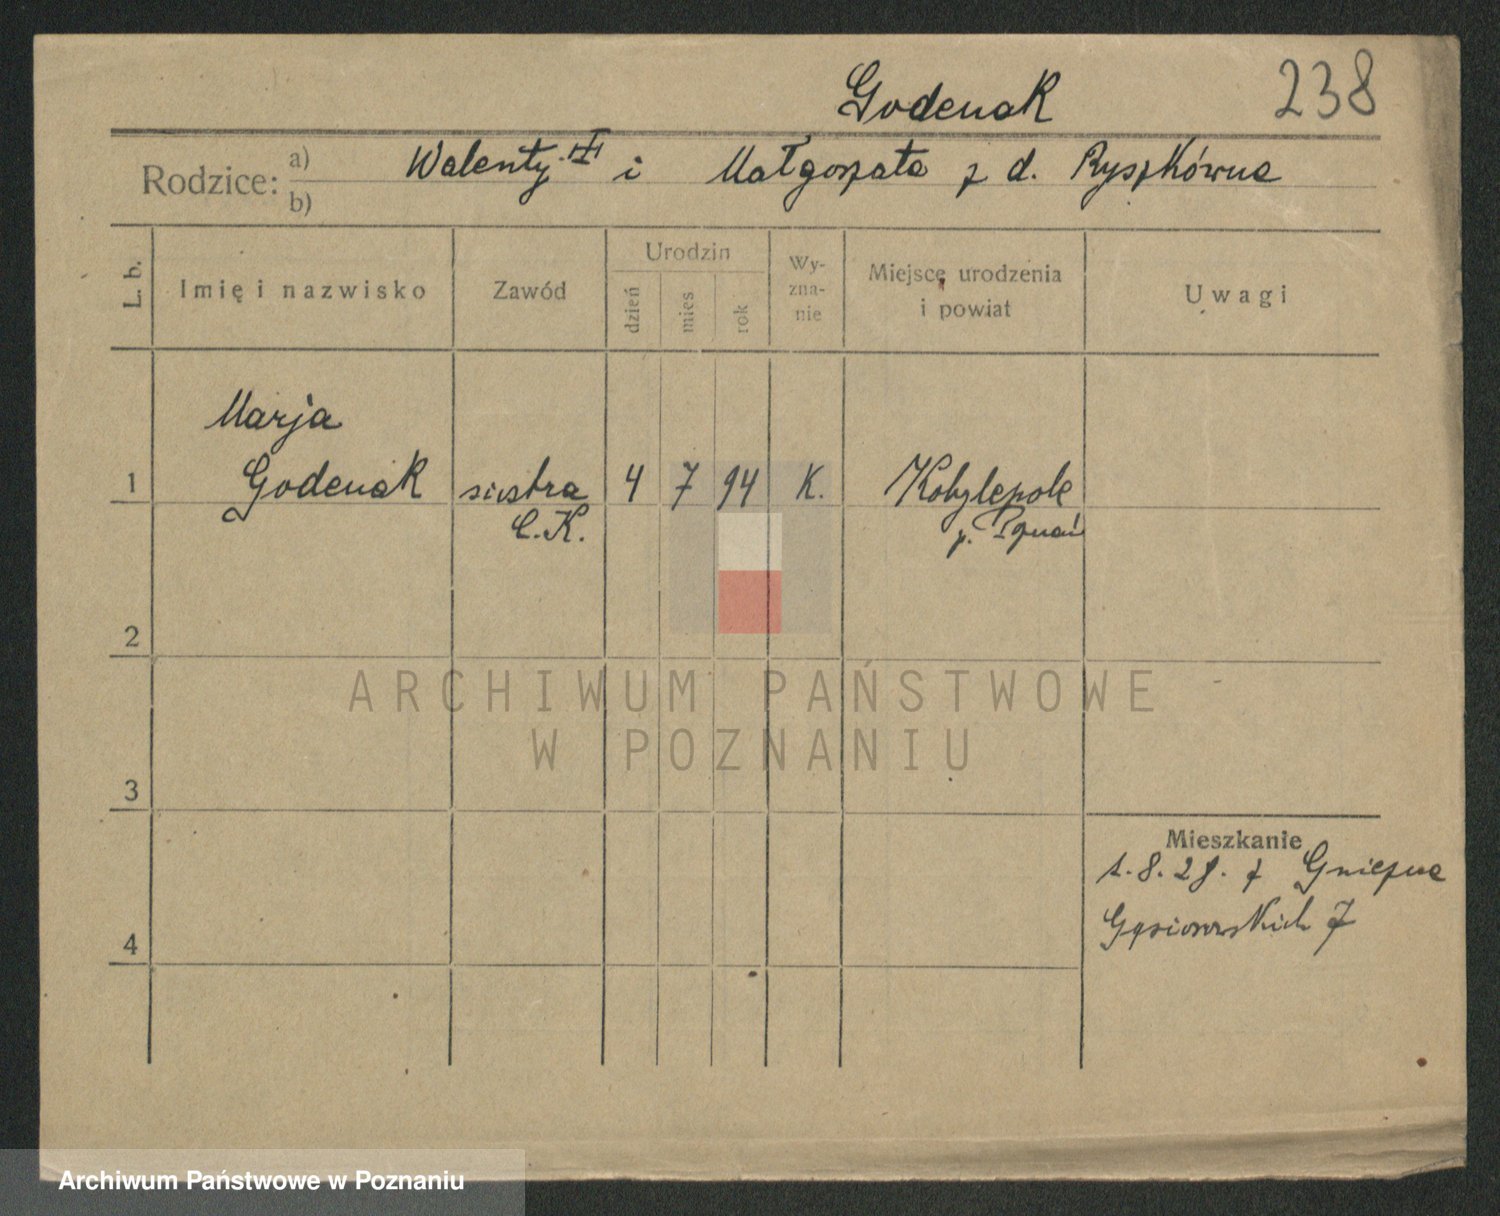 Godenak 238
Rodzice: a) Walenty i Małgorzata z d. Ryszkówna
b)
L. b. Imię i nazwisko Zawód Urodzin dzień mies rok Wy-zna-nie Miejsce urodzenia i powiat Uwagi
Marja
1 Godenak siostra 4 7 94 K. Kobylepole
C.K. p. Poznań
2
ARCHIWUM PAŃSTWOWE
W POZNANIU
3
Mieszkanie
1.8.28. z Gniezna
4 Gąsiorowskich 7
Archiwum Państwowe w Poznaniu